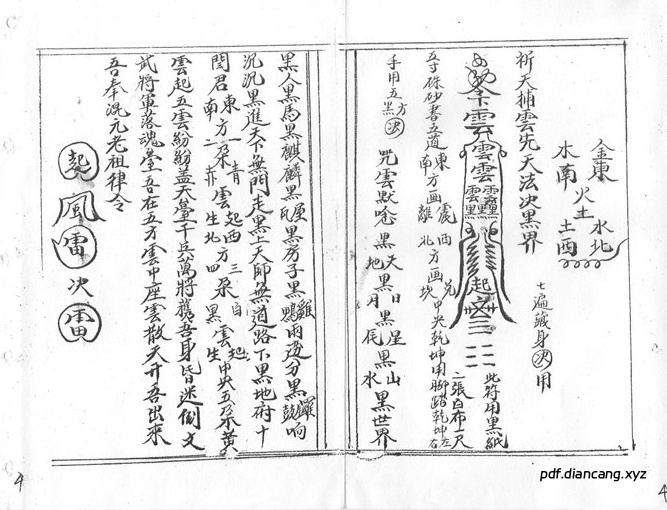 金東 水北
火土
木南 土西
七遍藏身決用
祈天捕雲先天法决黑界
令下雲雲雲
起
此符用黑紙
二張白布一尺
五寸硃砂書五道東南方画震離西北方画兑坎中央乾坤用腳踏乾坤左右
手用五方黑決 咒雲默唸黑天地黑日月黑星辰黑山水黑世界
黑人黑馬黑麒麟黑厝瓦黑房子黑鷄鵝兩邊分黑鑼鼓响
沉沉黑進天下無門走黑上天師無道路下黑地府十
閆君東南方一二朶青赤雲起生西北方三四朶白黑雲起生中央五朶黃
雲起五雲紛紛盖天臺千兵萬將護吾身皆迷倒文
武將軍落魂臺吾在五方雲中座雲散天开吾出來
吾奉混元老祖律令
起風雷次雷
pdf.diancang.xyz
4
4